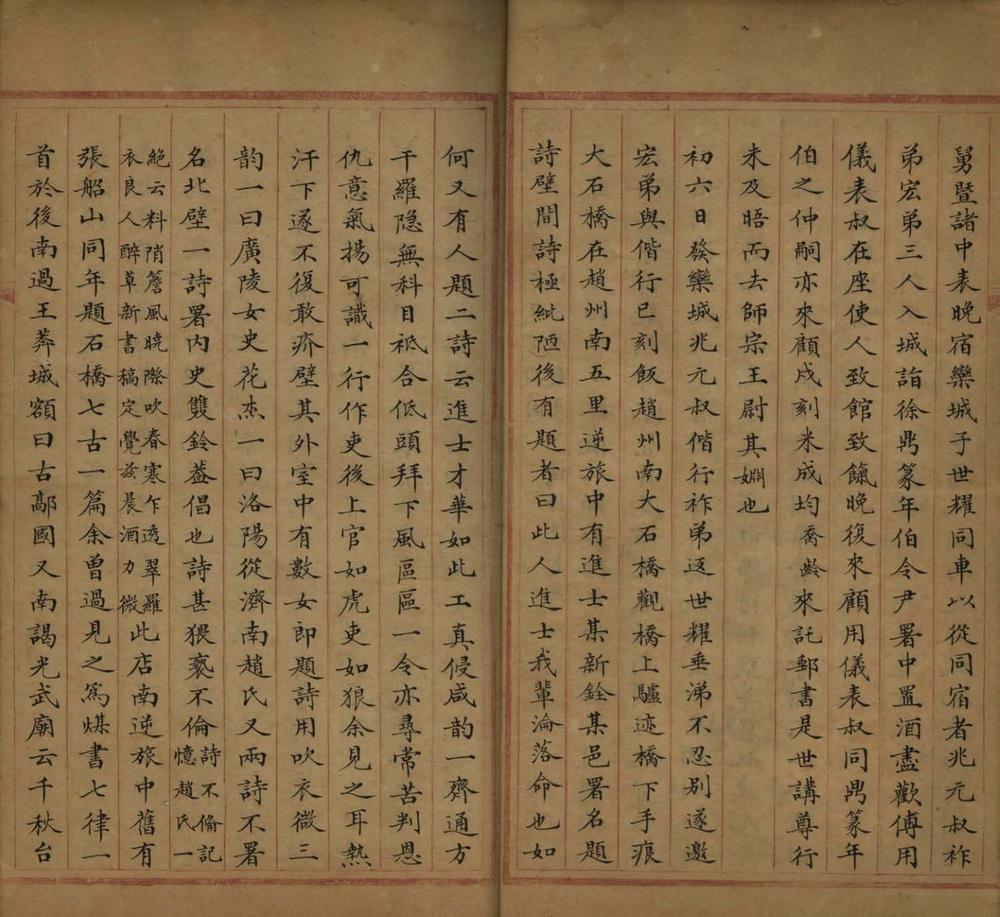 舅暨諸中表晚宿欒城子世耀同車以從同宿者兆元叔祚
弟宏弟三人入城詣徐鼎篆年伯令尹署中置酒盡歡傅用
儀表叔在座使人致館致餼晚復來顧用儀表叔同鼎篆年
伯之仲嗣亦來顧戍刻米成均喬齡來託郵書是世講尊行
未及晤而去師宗王尉其婣也
初六日發欒城兆元叔偕行祚弟返世耀垂涕不忍別遂邀
宏弟與偕行巳刻飯趙州南大石橋觀橋上驢迹橋下手痕
大石橋在趙州南五里逆旅中有進士某新銓某邑署名題
詩壁間詩極紕陋後有題者曰此人進士我輩淪落命也如
何又有人題二詩云進士才華如此工真侵咸韵一齊通方
干羅隐無科目祗合低頭拜下風區區一令亦尋常苦判恩
仇意氣揚可識一行作吏後上官如虎吏如狼余見之耳熱
汗下遂不復敢疥壁其外室中有數女郎題詩用吹衣微三
韵一曰廣陵女史花杰一曰洛陽從濟南趙氏又兩詩不署
名北壁一詩署内史雙鈴葢倡也詩甚猥褻不倫詩不倫記
憶趙氏一
絶云料陗簷風曉際吹春寒乍透翠羅
衣良人醉草新書稿定覺兹晨酒力微此店南逆旅中舊有
張船山同年題石橋七古一篇余曽過見之爲煤書七律一
首於後南過王莽城額曰古鄗國又南謁光武廟云千秋台